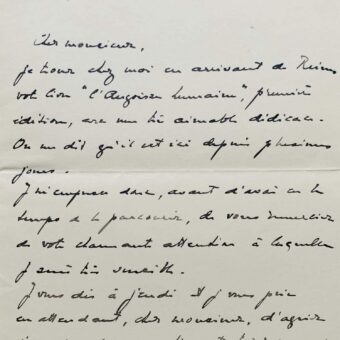 Cher monsieur,
je trouve chez moi en arrivant de Reims
votre livre "l'Angoisse humaine", première
édition, avec une très aimable dédicace.
On me dit qu'il est ici depuis plusieurs
jours.
J'm'empresse donc, avant d'avoir eu le
temps de le parcourir, de vous remercier
de votre charmante attention à laquelle
je suis très sensible.
Je vous dis à jeudi et je vous prie
en attendant, cher monsieur, d'agréer